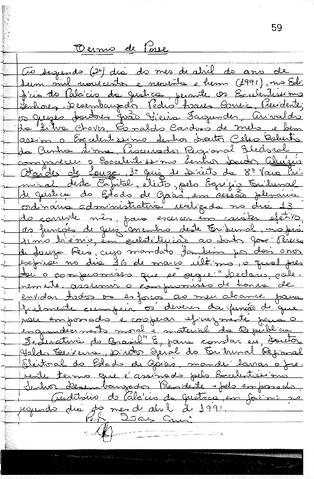 59
Termo de Posse
Ao segundo (2º) dia do mes de abril do ano de
hum mil novecentos e noventa e hum (1991), no Edi-
fício do Palácio da Justiça, presente os Excelentíssimo
Senhores Desembargador Pedro Soares Correia, Presidente,
os Juízes Doutores João Vieira Fagundes,
da Silva Chaves, Ronaldo Cardoso de Melo, e bem
assim o Excelentíssimo Senhor Doutor Célio Roberto
da Cunha Lima, Procurador Regional Eleitoral,
compareceu o Excelentíssimo Senhor Doutor Aluízio
Ataídes de Souza, Juiz de Direito da 8ª Vara Cri-
minal desta Capital, eleito, pelo Egrégio Tribunal
de Justiça do Estado de Goiás em sessão plenária
ordinária administrativa realizada no dia 13
do corrente mês, para exercer em caráter efetivo,
as funções de Juiz membro deste Tribunal, no
biênio, em substituição ao Doutor José Pereira
de Souza Reis, cujo mandato também por dois anos
expirou no dia 26 de março último, o qual pres-
tou o compromisso que se segue: "Declaro, sole-
nemente, assumir o compromisso de honra de
envidar todos os esforços ao meu alcance para
fielmente cumprir os deveres da função de que
sou empossado e cooperar eficazmente para o
engrandecimento moral e material da República
Federativa do Brasil". E, para constar eu, Doutor
Teixeira, Diretor Geral do Tribunal Regional
Eleitoral do Estado de Goiás, mandei lavrar o pre-
sente termo que é assinado pelo Excelentíssimo
Senhor Desembargador Presidente e pelo empossado.
Auditório do Palácio da Justiça, em Goiânia, no
segundo dia do mes de abril de 1991.